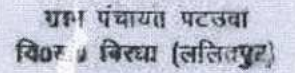 ग्राम पंचायत पटउवा
वि०ख० बिरधा (ललितपुर)